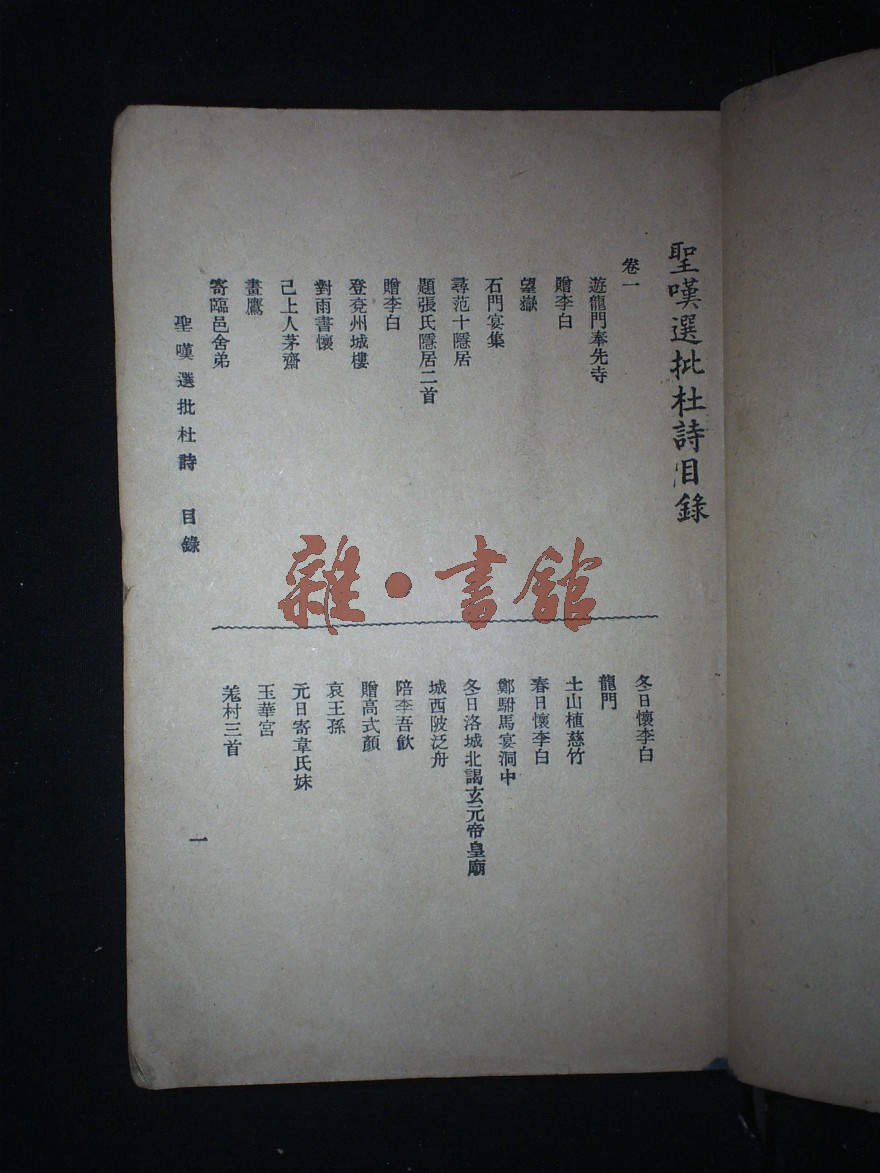 聖嘆選批杜詩目錄
卷一
遊龍門奉先寺
贈李白
望嶽
石門宴集
尋范十隱居
題張氏隱居二首
贈李白
登兗州城樓
對雨書懷
己上人茅齋
畫鷹
寄臨邑舍弟
冬日懷李白
龍門
土山植慈竹
春日懷李白
鄭駙馬宴洞中
冬日洛城北謁玄元帝皇廟
城西陂泛舟
陪李吾飲
贈高式顏
哀王孫
元日寄韋氏妹
玉華宮
羌村三首
聖嘆選批杜詩 目錄
一
雜·書館